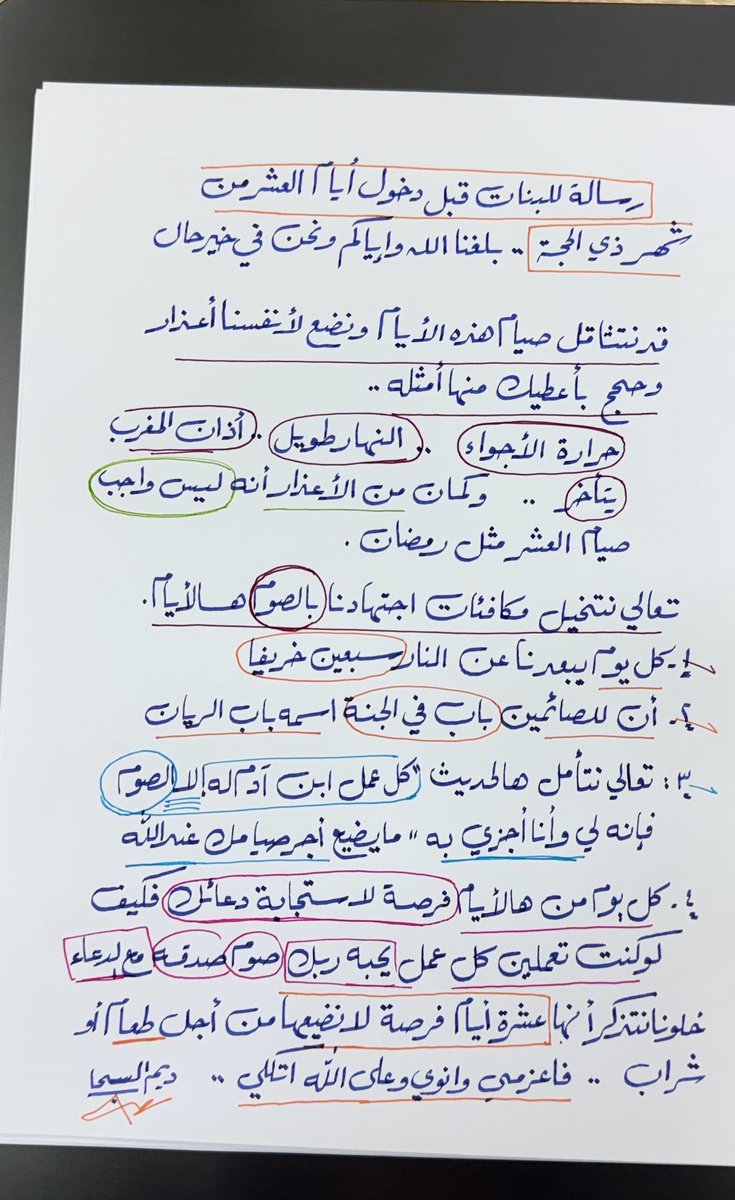 رسالة للبنات قبل دخول أيام العشر من
شهر ذي الحجة .. بلغنا الله وإياكم ونحن في خير حال
قد نتثاقل صيام هذه الأيام ونضع لأنفسنا أعذار
وحجج بأعطيك منها أمثله ..
حرارة الأجواء .. النهار طويل .. أذان المغرب
يتأخر .. وكمان من الأعذار أنه ليس واجب
صيام العشر مثل رمضان .
تعالي نتخيل مكافئات اجتهادنا بالصوم هالأيام .
١- كل يوم يبعدنا عن النار سبعين خريفا
٢. أن للصائمين باب في الجنة اسمه باب الريان
٣: تعالي نتأمل هالحديث "كل عمل ابن آدم له إلا الصوم
فإنه لي وأنا أجزي به" ما يضيع أجر صيامك عند الله
٤. كل يوم من هالأيام فرصة لاستجابة دعائك فكيف
لو كنت تعملين كل عمل يحبه ربك صوم صدقة مع الدعاء
خلونا نتذكر أنها عشرة أيام فرصة لا نضيعها من أجل طعام أو
شراب .. فاعزمي وانوي وعلى الله اتكلي .. ديم السحا